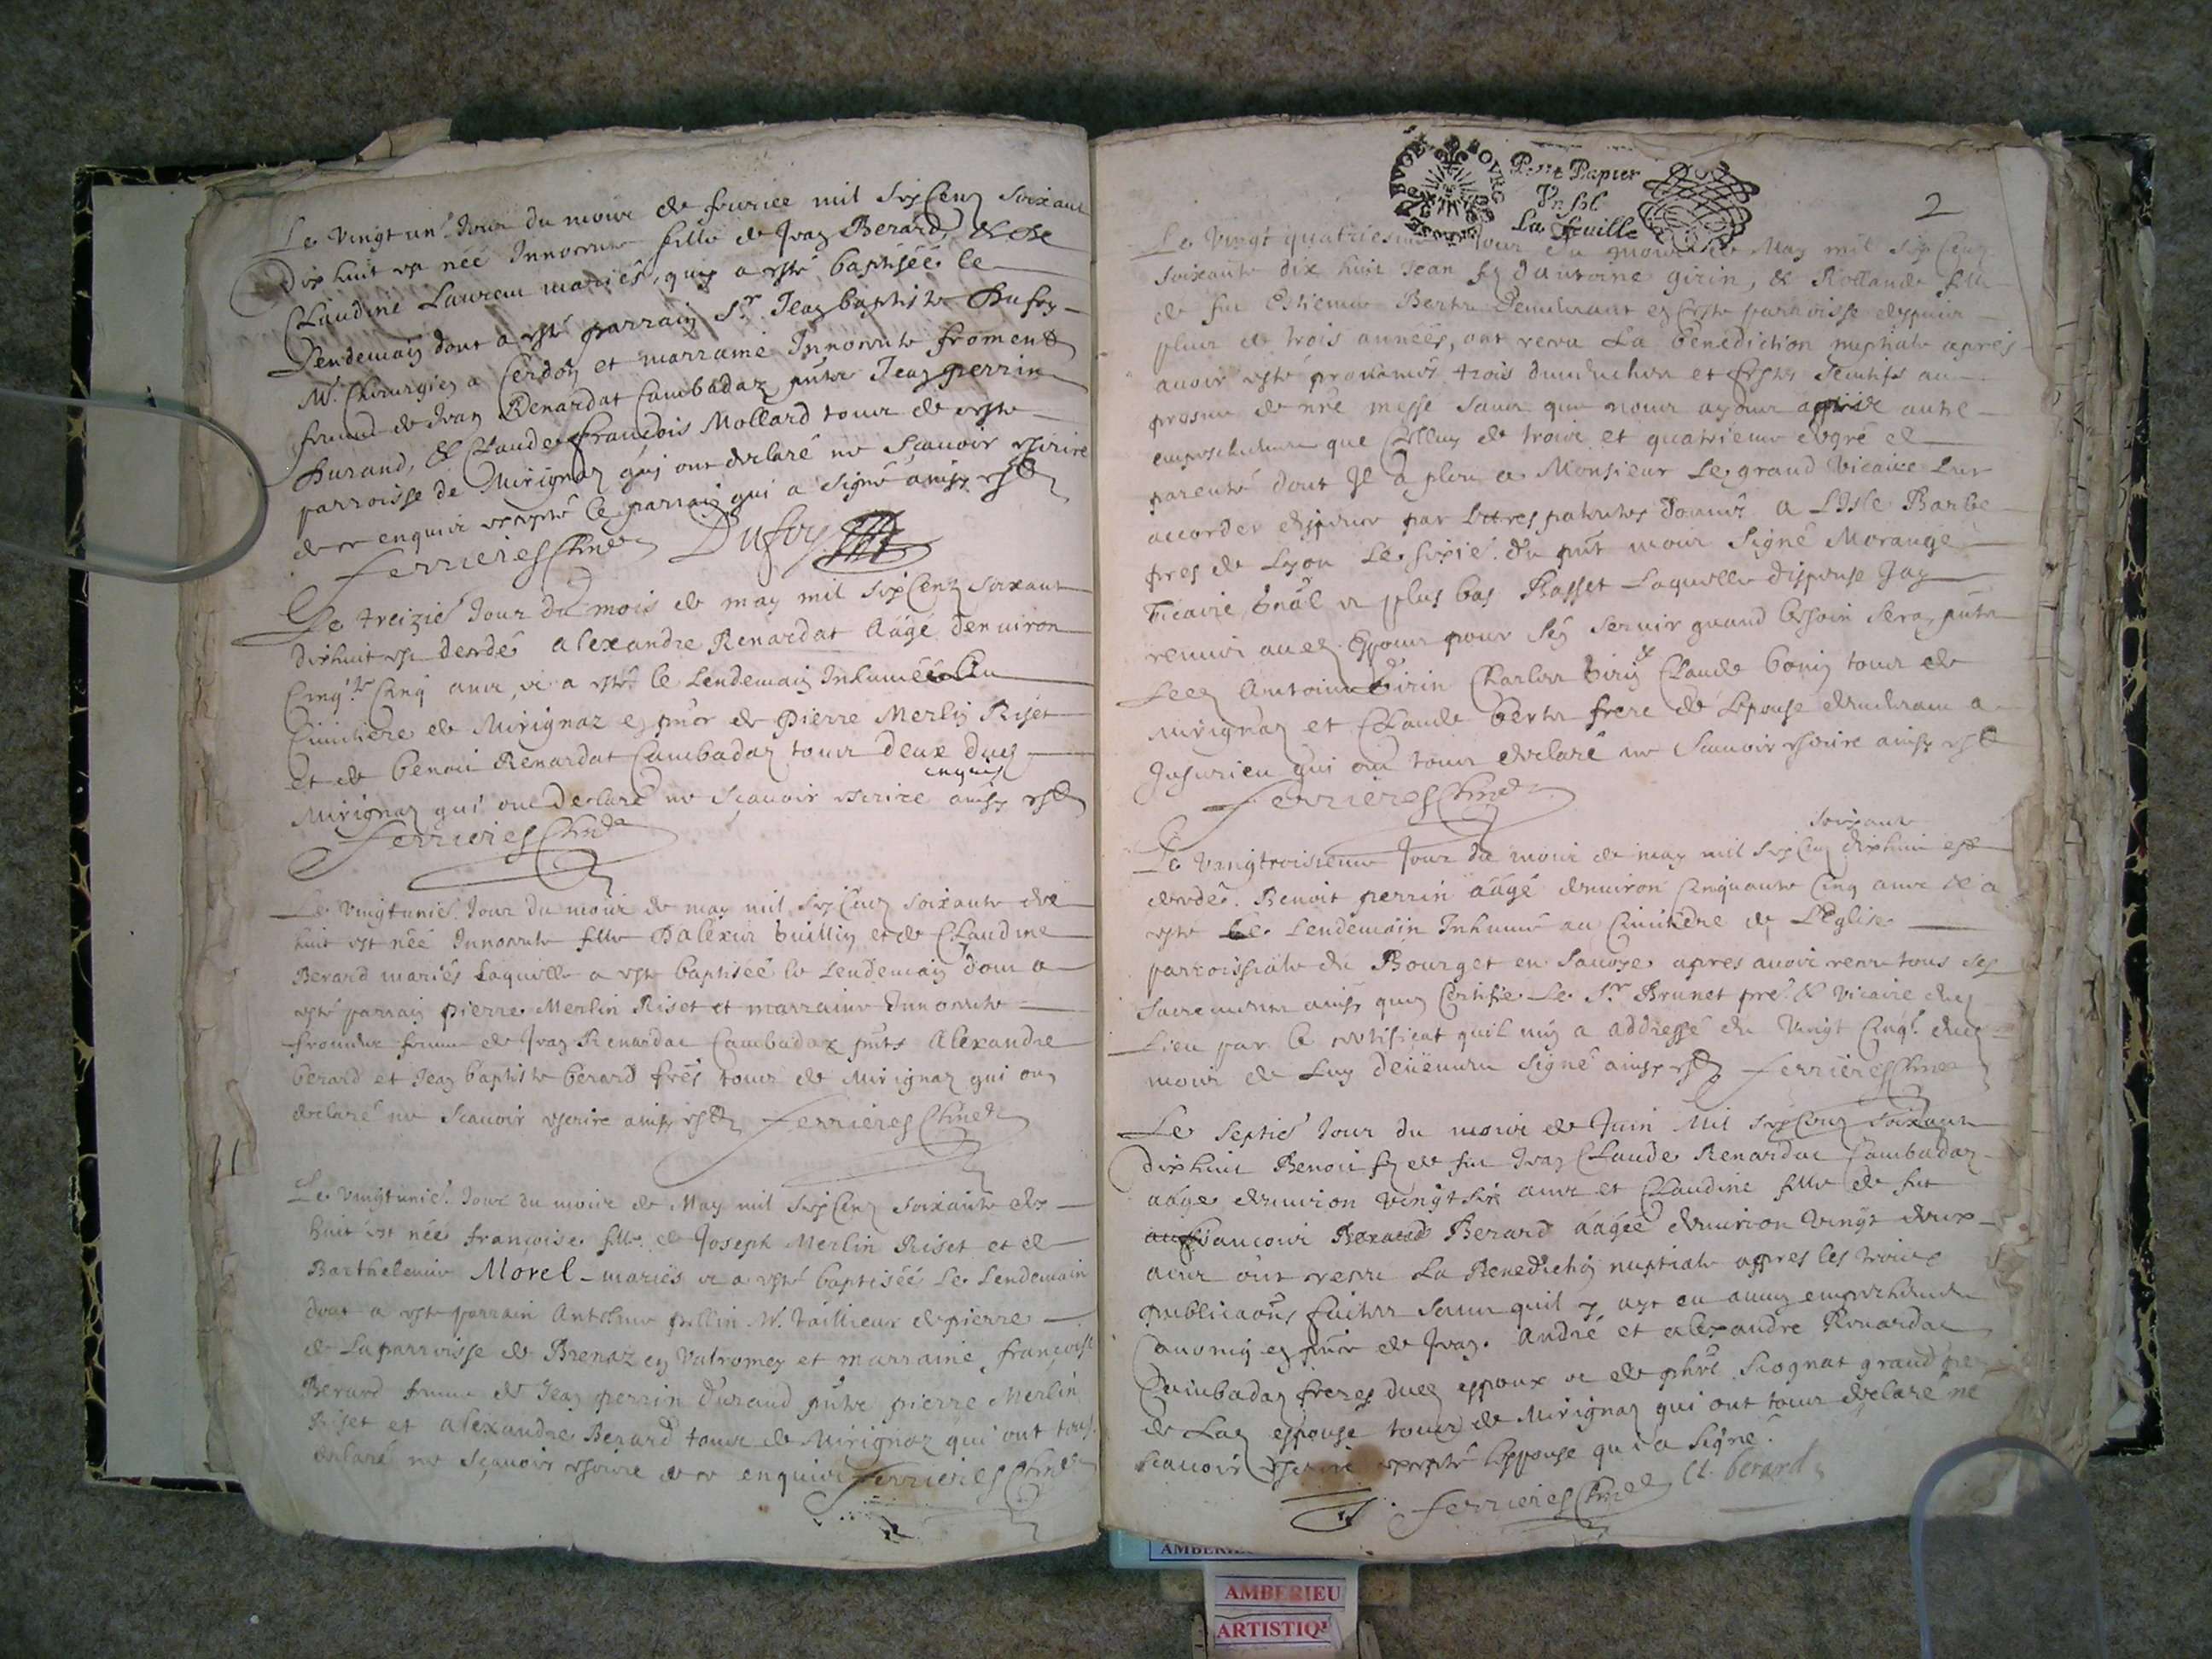 Le vingt un.e Jour du mois de fevrier mil six Cens soixante
dix huit est née Innocente fille de Jean Berard & de
Claudine Laurem mariés, qui a esté baptisée le
Lendemain dont a esté parrain Sr. Jean baptiste Dufoy
M.e Chirurgien a Cerdon et marraine Innocente froment
femme de Jean Renardat Cambadaz pnts Jean perrin
Durand, & Claude françois Mollard tous de ceste
parroisse de Mirignaz qui ont declaré ne Scavoir escrire
de ce enquis excepté le parrain qui a signé ainsy est
ferrieres Dufoy
Le treizie Jour du mois de may mil six Cens soixante
dixhuit est decedé alexandre Renardat Aagé denviron
Cinq.te Cinq ans, et a esté le Lendemain Inhumé au
Cimitiere de Mirignaz en pnce de pierre Merlin Riset
et de benoit Renardat Cambadaz tous deux dud
enquis
Mirignaz qui ont declaré ne Sçavoir escrire ainsy est
ferrieres
Le vingtunie. Jour du mois de may mil six Cens soixante dix
huit est née Innocente fille Dalexis Guillin et de Claudine
Berard mariés Laquelle a esté baptisée le Lendemain dont a
esté parrain pierre Merlin Riset et marraine Innocente
froment femme de Jean Renardat Cambadaz pnts Alexandre
berard et Jean baptiste berard fres tous de Mirignaz qui ont
declaré ne Scavoir escrire ainsy est ferrieres
Le vingtunie. Jour du mois de May mil six Cens soixante dix
huit est née françoise fille de Joseph Merlin Riset et de
Barthelemie Morel mariés et a esté baptisée Le Lendemain
dont a esté parrain Anthelme pollin M. tailleur de pierre
de La parroisse de Brenaz en Valromey et marraine françoise
Berard femme de Jean perrin Durand pnts pierre Merlin
Riset et alexandre Berard tous de Mirignaz qui ont tous
declaré ne Sçavoir escrire de ce enquis ferrieres
BVGEY BOVRG
Petit Papier
Vn sol
La feuille
2
Le Vingt quatriesme Jour du mois de May mil six Cens
soixante dix huit Jean fs dantoine girin, & Rollande fille
de fu Estienne Berte Demeurant en ceste parroisse despuis
plus de trois années, ont receu La benediction nuptiale apres
avoir esté proclamés trois dimanches et festes au
prosne de nre messe sans que nous ayons apris autre
empeschement que Celluy de trois et quatrieme degré de
parenté dont Il a pleu a Monsieur Le grand Vicaire Leur
accorder dispense par Lettres patentes données a LIsle Barbe
pres de Lyon Le sixie. du pnt mois Signé Morange
Vicaire gnal et plus bas Basset Laquelle dispense Jay
remis aud. Espoux pour sen servir quand besoin sera, pnts
Led Antoine Girin Charles Girin & Claude bonin tous de
Mirignaz et Claude berte frere de Lepouse demeurant a
Jusurieu qui ont tous declaré ne Scavoir escrire ainsy est
ferrieres
soixante
Le Vingtroisieme Jour du mois de may mil six Cens dixhuit est
decedé Benoit perrin aagé denviron Cinquante Cinq ans & a
esté Le Lendemain Inhumé au Cimitiere de LEglise
parroissiale du Bourget en Savoye apres avoir receu tous Les
sacremens ainsy que Certifie Le Sr Brunet pre. & vicaire dud
Lieu par le certificat quil my a addressé du Vingt Cinq.e dud
mois de Luy deüement signé ainsy est ferrieres
Le septie Jour du mois de Juin Mil six Cens soixante
dixhuit Benoit fs de fu Jean Claude Renardat Cambadaz
aagé denviron Vingt six ans et Claudine fille de fut
francois Berard aagée denviron Vingt deux
ans ont receu La Benediction nuptiale apres les trois
publicaons faites sans quil y ayt eu aucun empechement
Canonic en pnce de Jean. André et alexandre Renardat
Cambadaz freres dud espoux et de phbt Scognat grand pere
de Lad espouse tous de Mirignaz qui ont tous declaré ne
scavoir escrire excepté Lespouse qui a signé.
ferrieres Cl. berard
AMBERIEU
AMBERIEU
ARTISTIQ